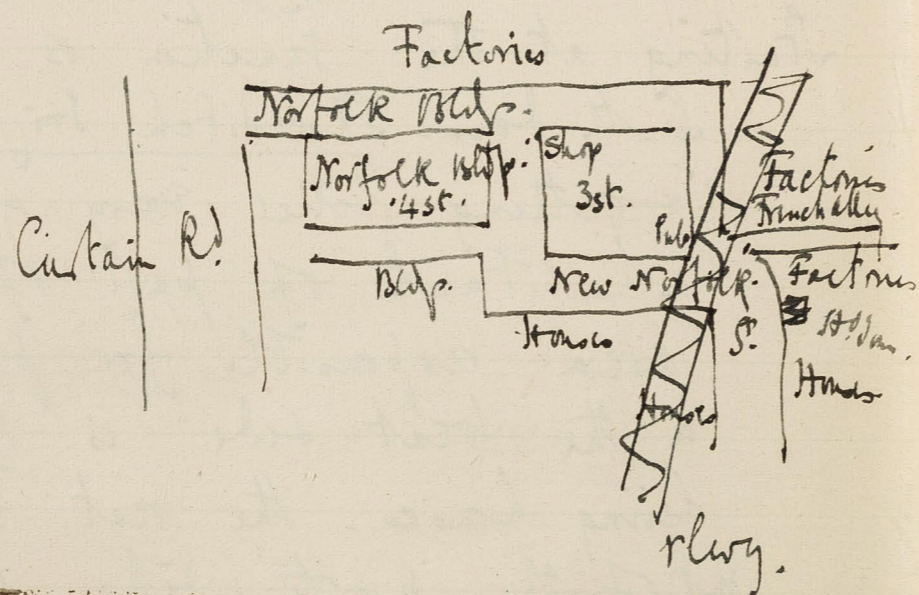 Factories
Norfolk Bldgs.
Norfolk Bldgs.
4st.
Shop
3st.
Factories
French alley
Pub
Curtain Rd.
Bldgs.
New Norfolk St.
Factories
Houses
Houses
Houses
rlwy.